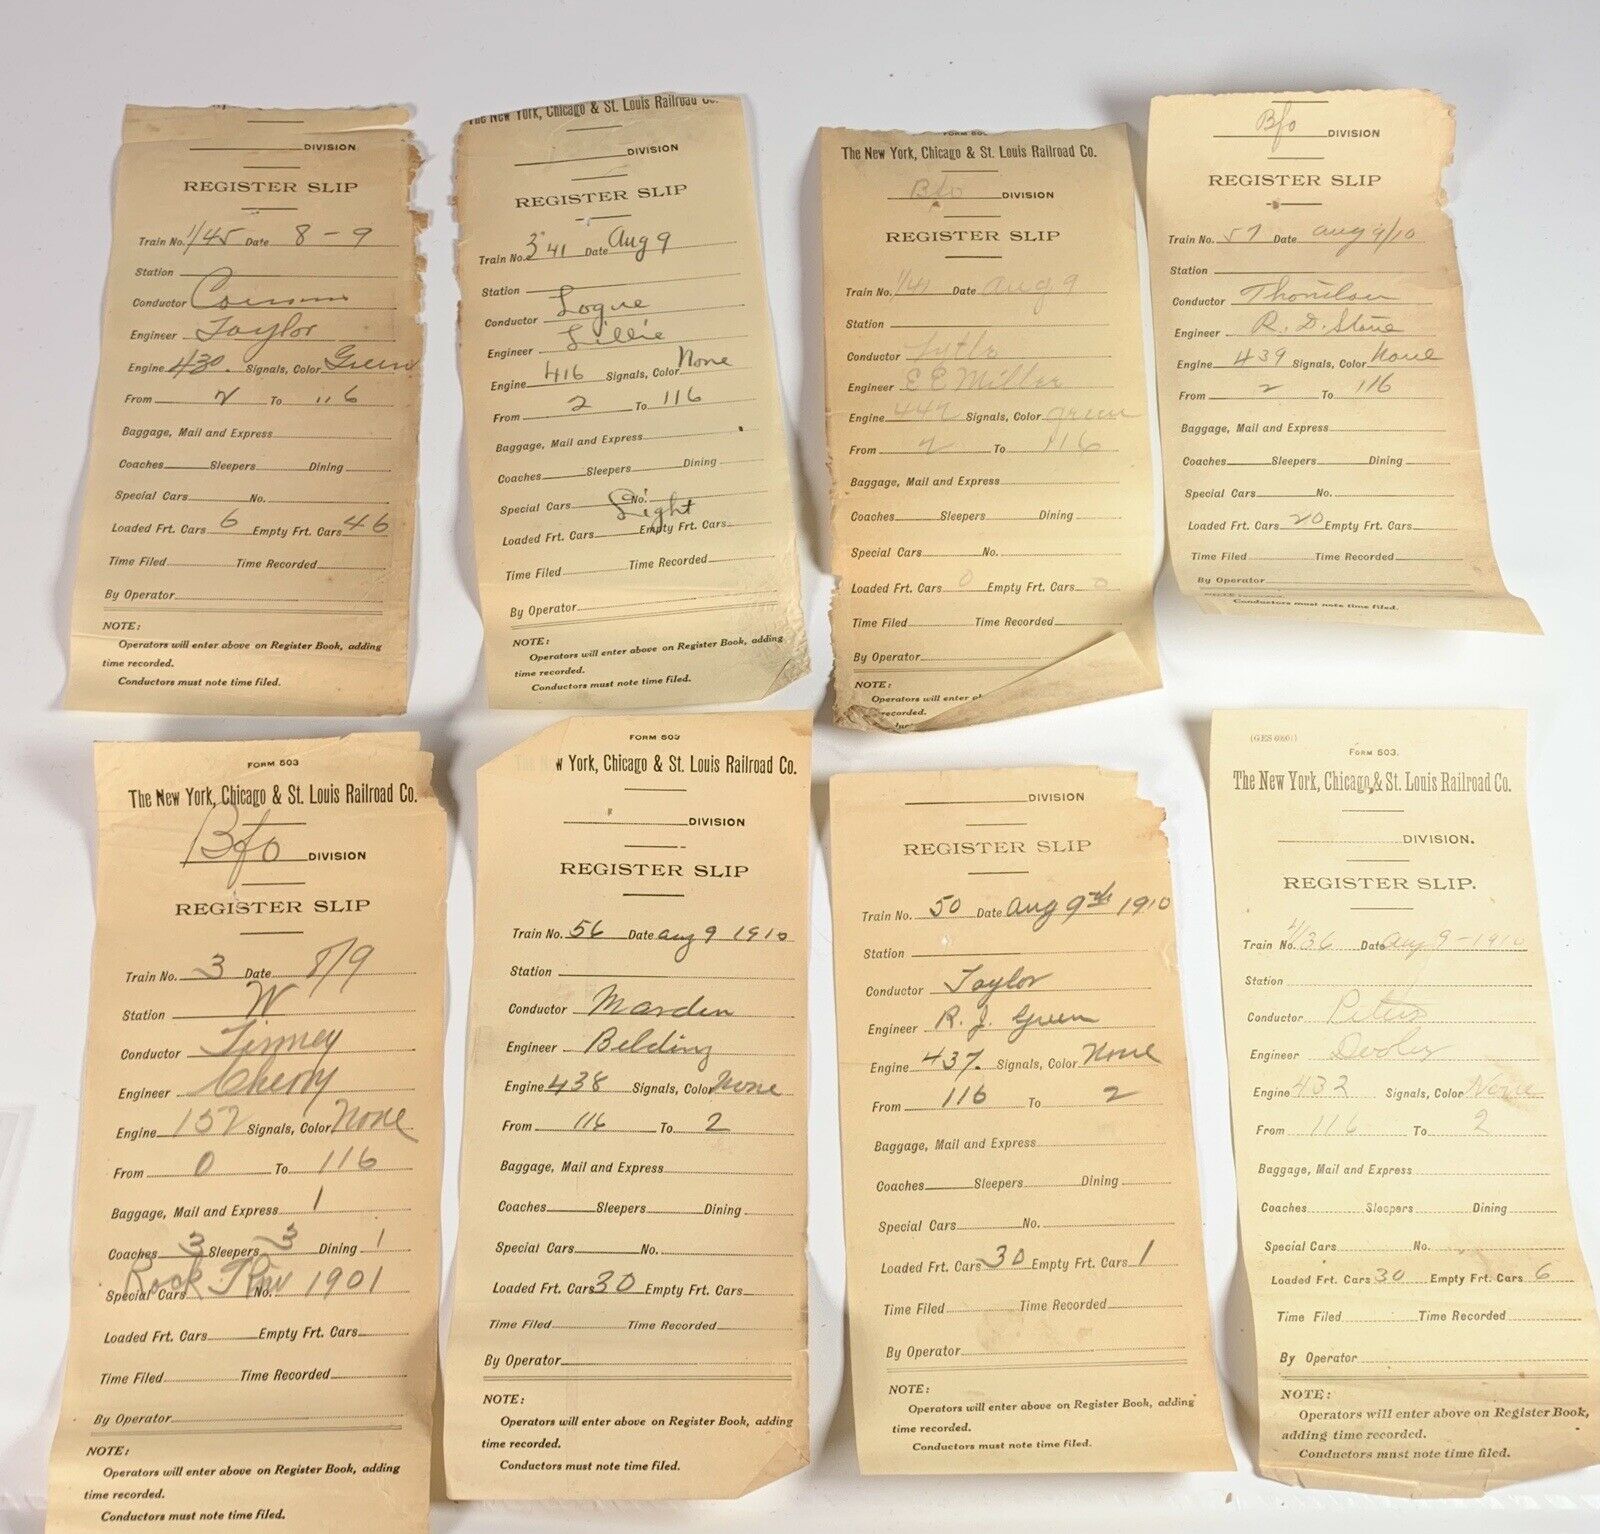 DIVISION
REGISTER SLIP
Train No. 1/45 Date 8-9
Station
Conductor
Engineer Taylor
Engine 430. Signals, Color Green
From 2 To 116
Baggage, Mail and Express
Coaches Sleepers Dining
Special Cars No.
Loaded Frt. Cars 6 Empty Frt. Cars 46
Time Filed Time Recorded
By Operator
NOTE:
Operators will enter above on Register Book, adding
time recorded.
Conductors must note time filed.
The New York, Chicago & St. Louis Railroad Co.
DIVISION
REGISTER SLIP
Train No. 3" 41 Date Aug 9
Station
Conductor Logue
Engineer Lillie
Engine 416 Signals, Color None
From 2 To 116
Baggage, Mail and Express
Coaches Sleepers Dining
Special Cars No.
Light
Loaded Frt. Cars Empty Frt. Cars
Time Filed Time Recorded
By Operator
NOTE:
Operators will enter above on Register Book, adding
time recorded.
Conductors must note time filed.
FORM 503
The New York, Chicago & St. Louis Railroad Co.
Bfo DIVISION
REGISTER SLIP
Train No. 1/41 Date Aug 9
Station
Conductor
Engineer E E Miller
Engine 442 Signals, Color green
From 2 To 116
Baggage, Mail and Express
Coaches Sleepers Dining
Special Cars No.
Loaded Frt. Cars 0 Empty Frt. Cars 0
Time Filed Time Recorded
By Operator
NOTE:
Operators will enter
recorded.
Bfo DIVISION
REGISTER SLIP
Train No. 57 Date Aug 9/10
Station
Conductor
Engineer R. D. Stone
Engine 439 Signals, Color None
From 2 To 116
Baggage, Mail and Express
Coaches Sleepers Dining
Special Cars No.
Loaded Frt. Cars 20 Empty Frt. Cars
Time Filed Time Recorded
By Operator
Conductors must note time filed.
FORM 503
The New York, Chicago & St. Louis Railroad Co.
Bfo DIVISION
REGISTER SLIP
Train No. 3 Date 8/9
Station W
Conductor Finney
Engineer Cherry
Engine 152 Signals, Color None
From 0 To 116
Baggage, Mail and Express 1
Coaches 3 Sleepers 3 Dining 1
Special Cars Rock No. 1901
Loaded Frt. Cars Empty Frt. Cars
Time Filed Time Recorded
By Operator
NOTE:
Operators will enter above on Register Book, adding
time recorded.
Conductors must note time filed.
FORM 503
New York, Chicago & St. Louis Railroad Co.
DIVISION
REGISTER SLIP
Train No. 56 Date Aug 9 1910
Station
Conductor Marden
Engineer Belding
Engine 438 Signals, Color None
From 116 To 2
Baggage, Mail and Express
Coaches Sleepers Dining
Special Cars No.
Loaded Frt. Cars 30 Empty Frt. Cars
Time Filed Time Recorded
By Operator
NOTE:
Operators will enter above on Register Book, adding
time recorded.
Conductors must note time filed.
DIVISION
REGISTER SLIP
Train No. 50 Date Aug 9th 1910
Station
Conductor Taylor
Engineer R. J. Green
Engine 437. Signals, Color None
From 116 To 2
Baggage, Mail and Express
Coaches Sleepers Dining
Special Cars No.
Loaded Frt. Cars 30 Empty Frt. Cars 1
Time Filed Time Recorded
By Operator
NOTE:
Operators will enter above on Register Book, adding
time recorded.
Conductors must note time filed.
FORM 503.
The New York, Chicago & St. Louis Railroad Co.
DIVISION.
REGISTER SLIP.
Train No. 1/36 Date Aug 9-1910
Station
Conductor Peters
Engineer Dooley
Engine 432 Signals, Color None
From 116 To 2
Baggage, Mail and Express
Coaches Sleepers Dining
Special Cars No.
Loaded Frt. Cars 30 Empty Frt. Cars 6
Time Filed Time Recorded
By Operator
NOTE:
Operators will enter above on Register Book,
adding time recorded.
Conductors must note time filed.